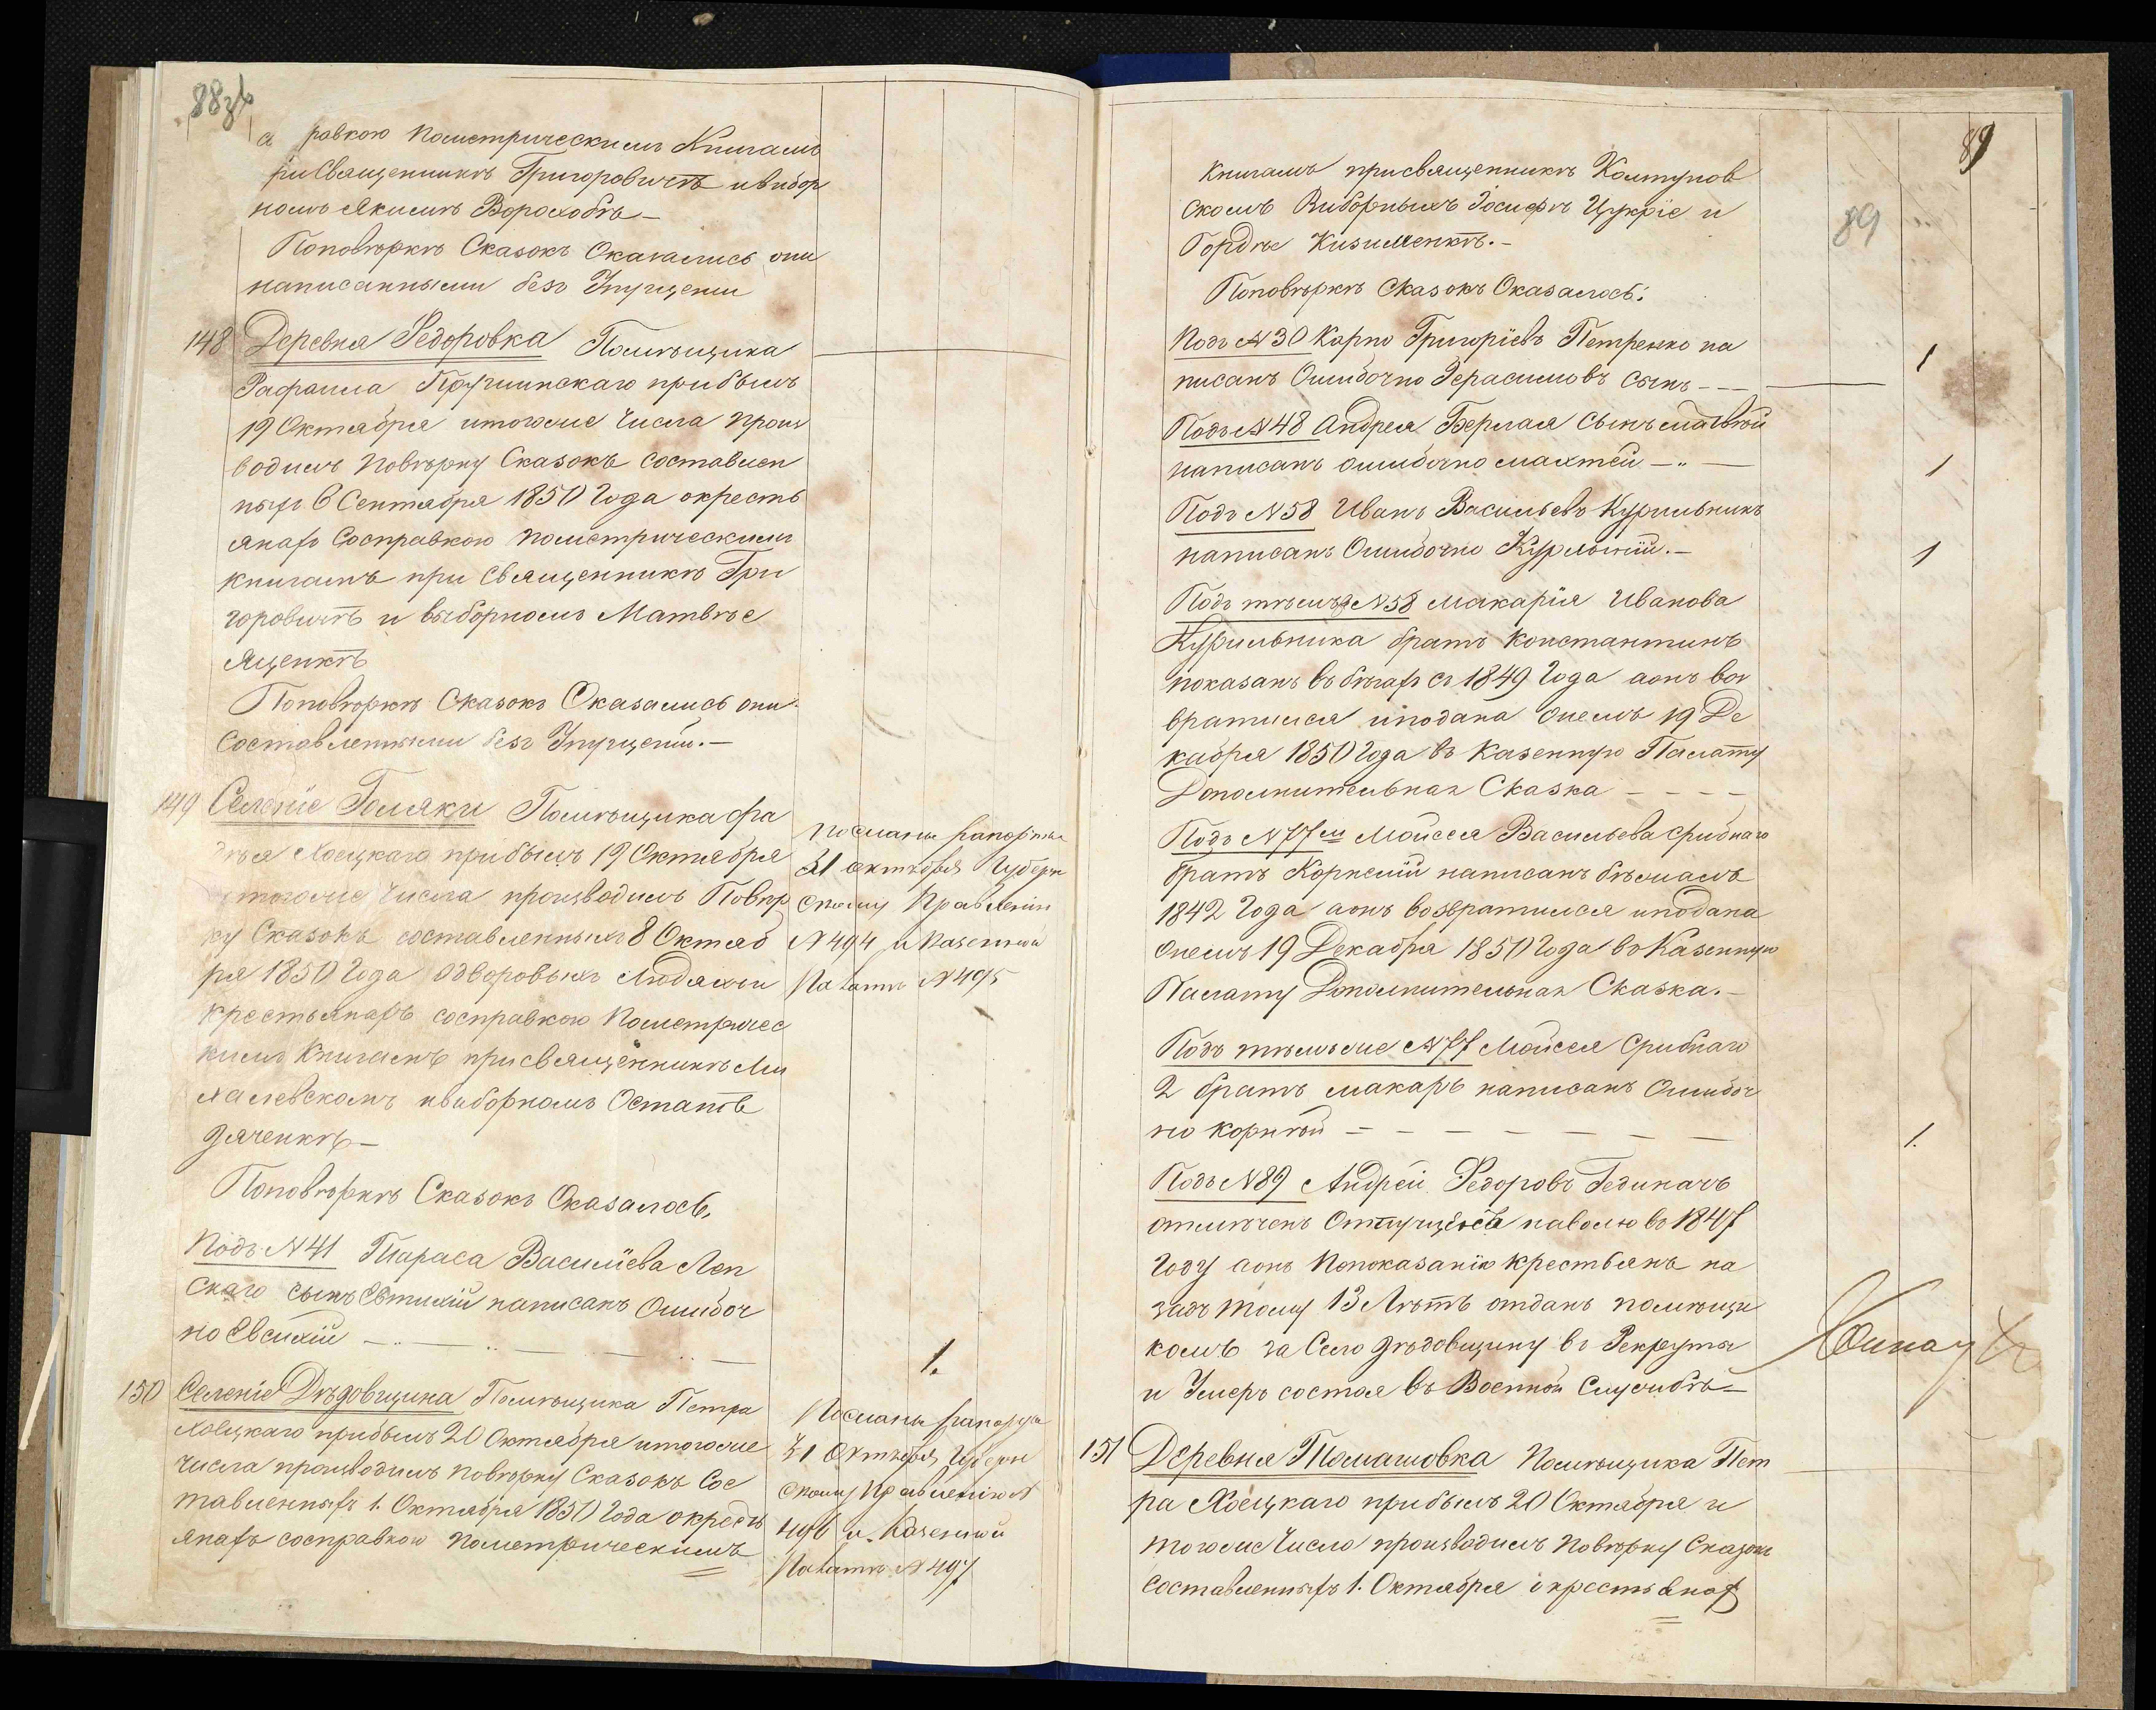 88 зв
равкою пометрическимъ Книгамъ
при Священникѣ Григоровичѣ ивибор
номъ Якимѣ Ворохобѣ —
Поповѣркѣ Сказокъ Оказались они
написанными безъ Упущенiи
148 Деревня Федоровка Помѣщика
Рафаила прибылъ
19 Октября итогоже Числа произ
водилъ повѣрку Сказокъ составлен
ныхъ 6 Сентября 1850 Года окресть
янахъ Сосправкою пометрическимъ
книгамъ при Священникѣ Гри
горовичѣ и выборномъ Матвѣе
Ященкѣ
Поповѣркѣ Сказокъ Оказались они
составленными безъ Упущенiи. —
149 Селенiе Голяки Помѣщика Фа
дѣя Хоецкаго прибылъ 19 Октября
итогоже Числа производилъ Повѣр
ку Сказокъ составленныхъ 8 Октяб
ря 1850 Года одворовыхъ Людяхъи
крестьянахъ сосправкою пометричес
кимъ Книгамъ присвященникѣ Ми
халевскомъ ивиборномъ Остапѣ
Дяченкѣ —
Поповѣркѣ Сказокъ Оказалось,
Подъ N 41 Тараса Василiева Леп
скаго сынъ Евтихiй написанъ Ошибоч
но Евсихiй — .. — .. — .. —
посланы рапорты
31 октября Губерн
скому Правленiю
N 494 и Казенной
Палатѣ N 495
1.
150 Селенiе Дѣдовщина Помѣщика Петра
Хоецкаго прибылъ 20 Октября итогоже
числа производилъ повѣрку Сказокъ Сос
тавленныхъ 1. Октября 1850 Года окресть
янахъ сосправкою пометрическимъ
Посланы рапорты
31 Октября Губерн
скому Правленiю N
496 и Казенной
Палатѣ N 497
89
89
книгамъ присвященникѣ Колтунов
скомъ Виборныхъ Iосифѣ Цукрiе и
Гордѣе Кизименкѣ. —
Поповѣркѣ Сказокъ Оказалось:
Подъ N 30 Карпо Григорiевъ Петренко на
писанъ Ошибочно Герасимовъ Сынъ — — 1
Подъ N 48 Андрея Берлая Сынъ Матвѣй
написанъ ошибочно Махтей — .. — 1
Подъ N 58 Иванъ Васильевъ Курильникъ
написанъ Ошибочно — 1
Подъ тѣмъже N 58 Макарiя Иванова
Курильника братъ Константинъ
показанъ въ бѣгахъ съ 1849 Года аонъ воз
вратился иподана Онемъ 19 Де
кабря 1850 Года въ Казенную Палату
Дополнительная Сказка — — — —
Подъ N 77мъ Мойсея Васильева Срибнаго
братъ Корнелiй написанъ бѣжалъ
1842 Года аонъ возвратился иподана
Онемъ 19 Декабря 1850 Года въ Казенную
Палату Дополнительная Сказка. —
Подъ тѣмъже N 77 Мойсея Срибнаго
2 братъ Макаръ написанъ Ошибоч
но Корнѣй — — — — — — — 1.
Подъ N 89 Андрей Федоровъ
отмѣченъ Отпущенъ наволю въ 1847
Году аонъ Попоказанiю крестьянъ на
задъ тому 13 Лѣтъ отданъ помѣщи
комъ за Село Дѣдовщину въ Рекруты
и Умеръ состоя въ Военной Службѣ —
151 Деревня Томашовка Помѣщика Пет
ра Хоецкаго прибылъ 20 Октября и
тогоже Числа производилъ повѣрку Сказокъ
составленныхъ 1. Октября окрестьянахъ